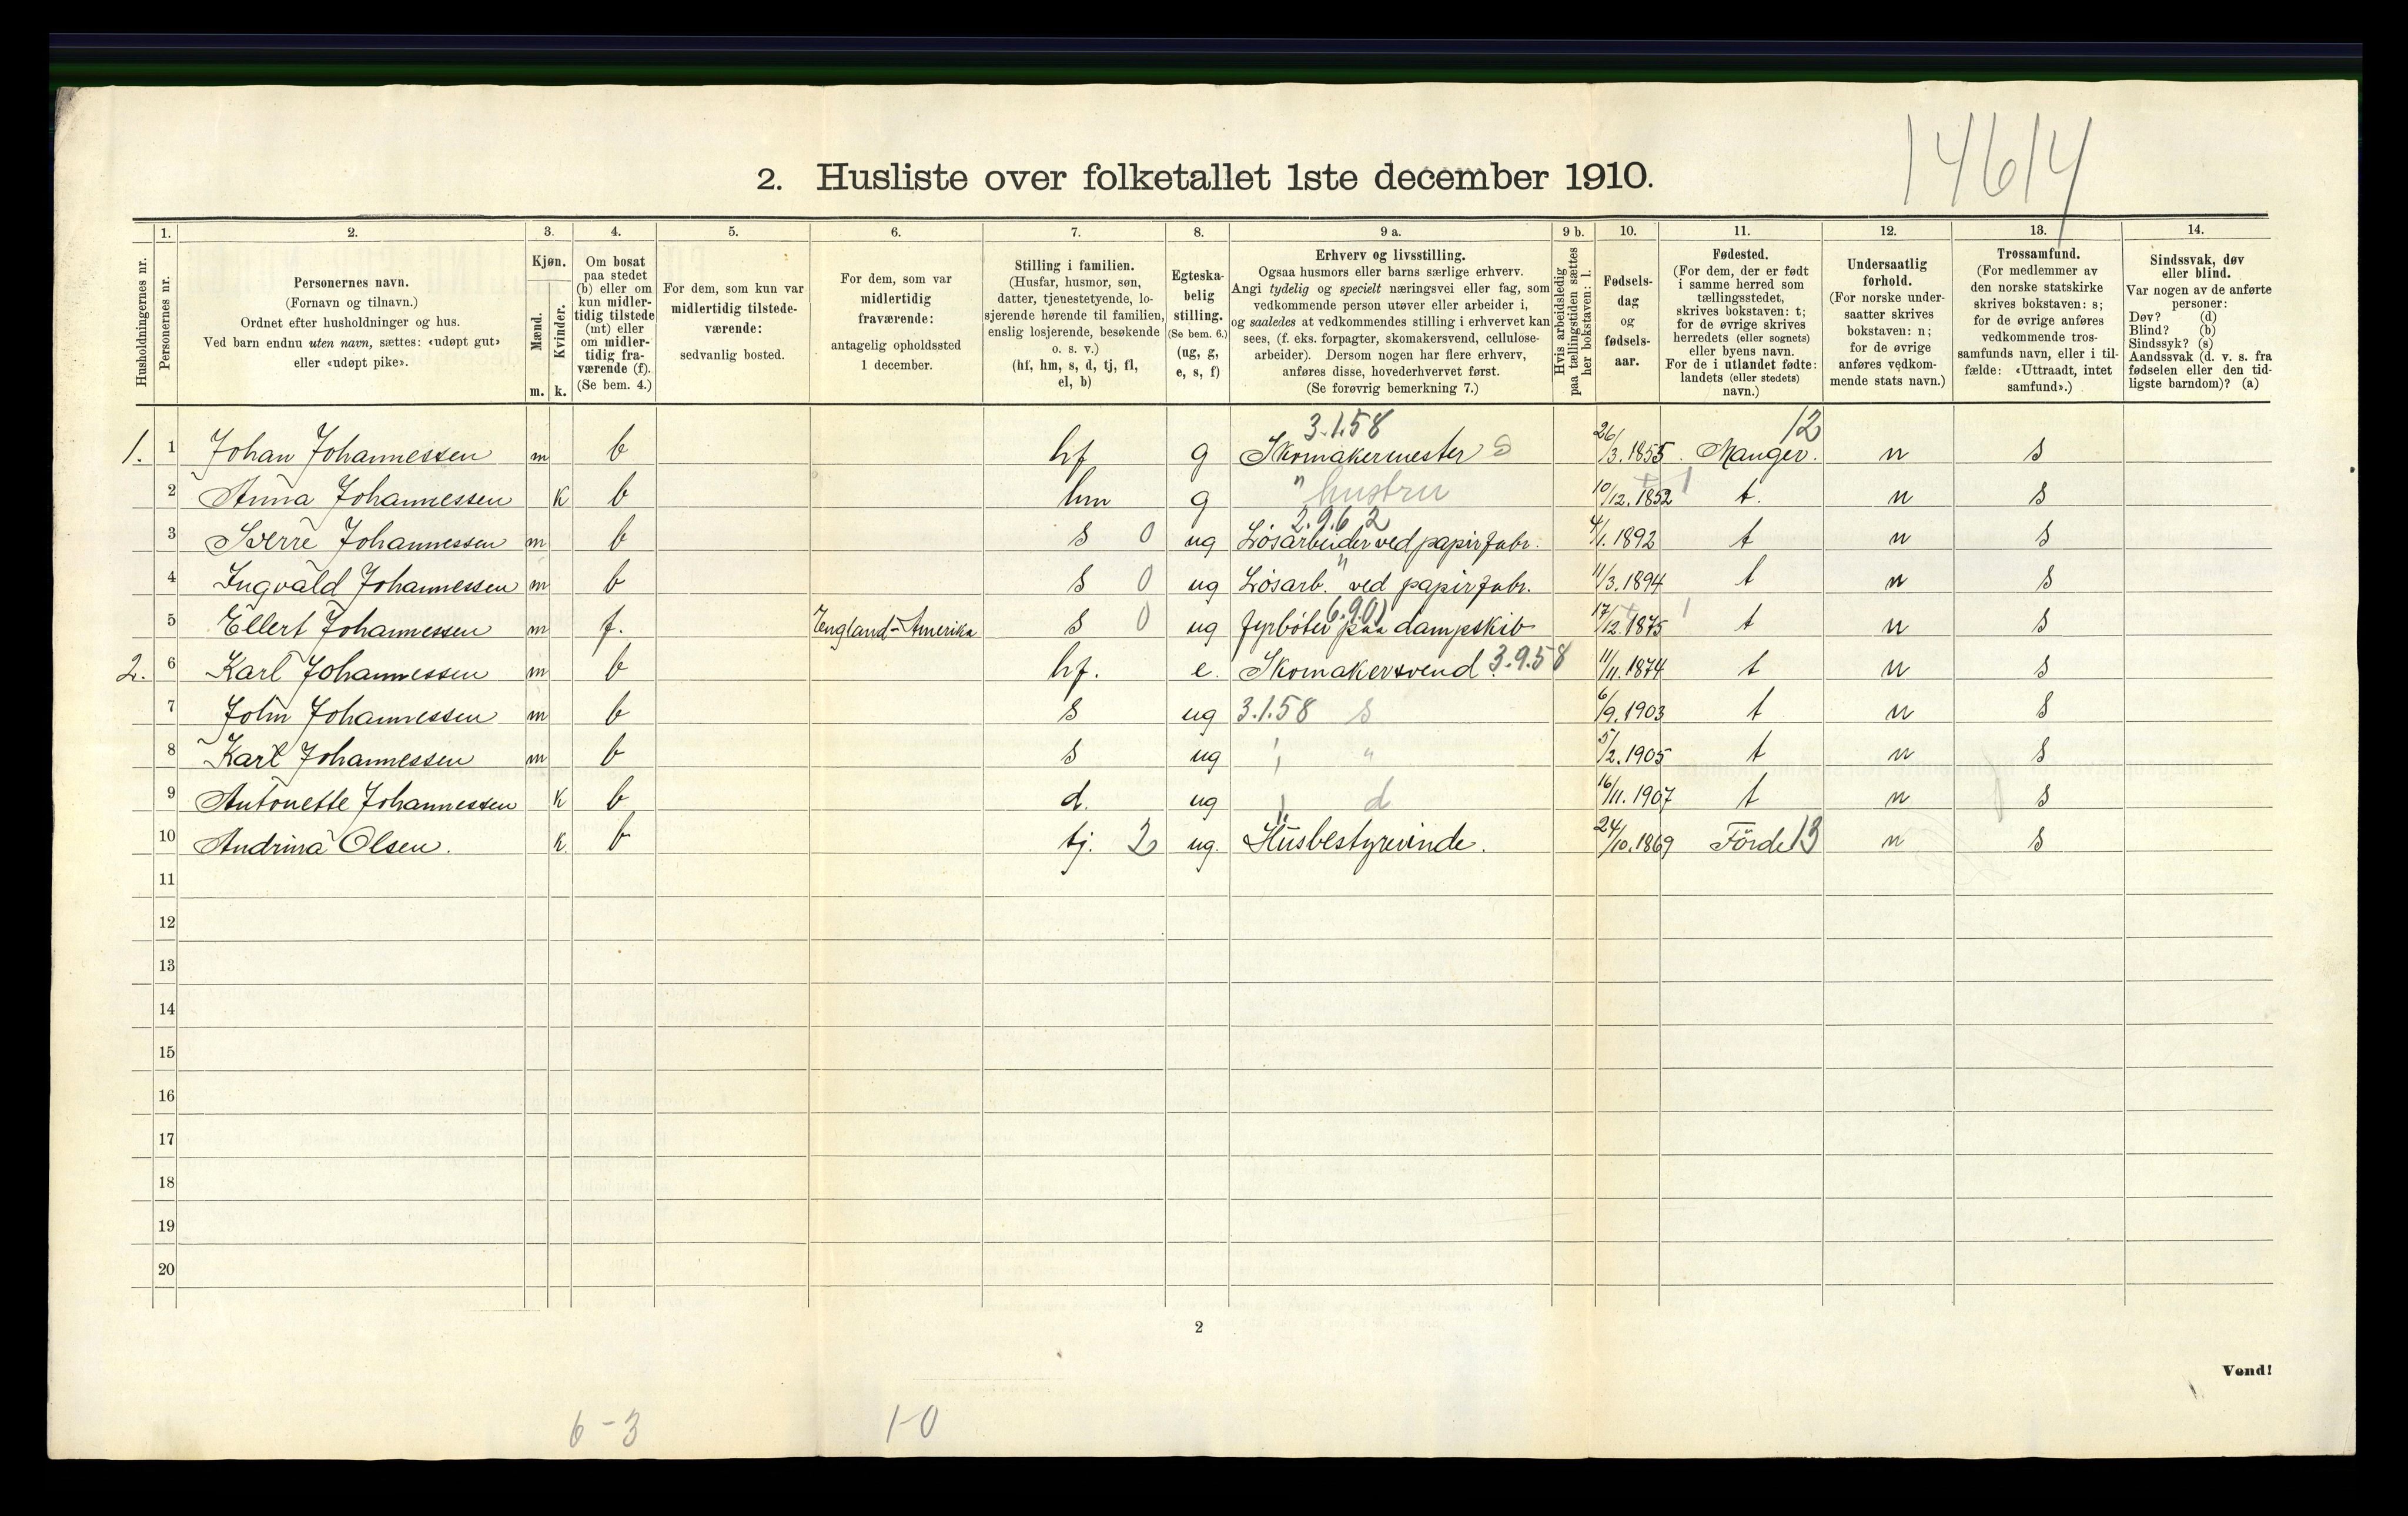 14614
2. Husliste over folketallet 1ste december 1910.
Husholdningernes nr.
1. Personernes nr.
2. Personernes navn.
(Fornavn og tilnavn.)
Ordnet efter husholdninger og hus.
Ved barn endnu uten navn, sættes: «udøpt gut»
eller «udøpt pike».
3. Kjøn.
Mænd. Kvinder.
m. k.
4. Om bosat
paa stedet
(b) eller om
kun midler-
tidig tilstede
(mt) eller
om midler-
tidig fra-
værende (f).
(Se bem. 4.)
5. For dem, som kun var
midlertidig tilstede-
værende:
sedvanlig bosted.
6. For dem, som var
midlertidig
fraværende:
antagelig opholdssted
1 december.
7. Stilling i familien.
(Husfar, husmor, søn,
datter, tjenestetyende, lo-
sjerende hørende til familien,
enslig losjerende, besøkende
o. s. v.)
(hf, hm, s, d, tj, fl,
el, b)
8. Egteska-
belig
stilling.
(Se bem. 6.)
(ug, g,
e, s, f)
9 a. Erhverv og livsstilling.
Ogsaa husmors eller barns særlige erhverv.
Angi tydelig og specielt næringsvei eller fag, som
vedkommende person utøver eller arbeider i,
og saaledes at vedkommendes stilling i erhvervet kan
sees, (f. eks. forpagter, skomakersvend, cellulose-
arbeider). Dersom nogen har flere erhverv,
anføres disse, hovederhvervet først.
(Se forøvrig bemerkning 7.)
9 b. Hvis arbeidsledig
paa tællingstiden sættes
her bokstaven: l.
10. Fødsels-
dag
og
fødsels-
aar.
11. Fødested.
(For dem, der er født
i samme herred som
tællingsstedet,
skrives bokstaven: t;
for de øvrige skrives
herredets (eller sognets)
eller byens navn.
For de i utlandet fødte:
landets (eller stedets)
navn.)
12. Undersaatlig
forhold.
(For norske under-
saatter skrives
bokstaven: n;
for de øvrige
anføres vedkom-
mende stats navn.)
13. Trossamfund.
(For medlemmer av
den norske statskirke
skrives bokstaven: s;
for de øvrige anføres
vedkommende tros-
samfunds navn, eller i til-
fælde: «Uttraadt, intet
samfund».)
14. Sindssvak, døv
eller blind.
Var nogen av de anførte
personer:
Døv? (d)
Blind? (b)
Sindssyk? (s)
Aandssvak (d. v. s. fra
fødselen eller den tid-
ligste barndom)? (a)
3.1.58 12
1. 1 Johan Johannessen m b hf g Skomakermester S 26/3.1855. Manger. n s
2 Anna Johannessen k b hm g " hustru 10/12.1852 1 t. n s
2.9.6 2
3 Sverre Johannessen m b s 0 ug Løsarbeider ved papirfabr. 4/1.1892 t n s
4 Ingvald Johannessen m b s 0 ug Løsarb. " ved papirfabr. 11/3.1894 t n s
6.9.01
5 Ellert Johannessen m f. England - Amerika s 0 ug fyrbøter paa dampskib 17/12.1875 1 t n s
2. 6 Karl Johannessen m b hf. e. Skomakersvend 3.9.58 11/11.1874 t n s
7 John Johannessen m b s ug 3.1.58 s 6/9.1903 t n s
8 Karl Johannessen m b s ug " " 5/2.1905 t n s
9 Antonette Johannessen k b d. ug " d 16/11.1907 t n s
10 Andrina Olsen. k. b tj. 2 ug. Husbestyrerinde. 24/10.1869 Förde 13 n s
11
12
13
14
15
16
17
18
19
20
2
Vend!
6-3 1-0